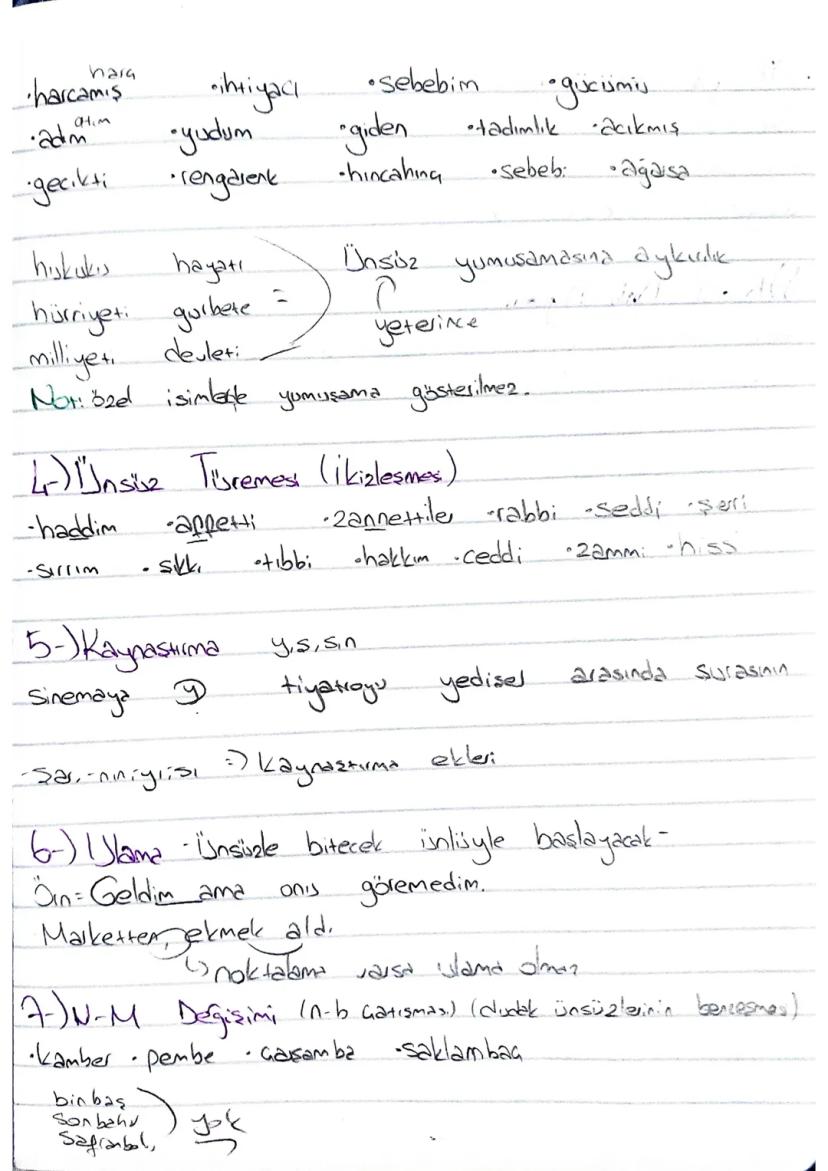 harcamış hara • ihtiyacı • sebebim • gücümü
• adım atım • yudum • giden • tadımlık • acıkmış
• gecikti • rengarenk • hıncahınç • sebebi • ağarsa
hukuku hayatı Ünsüz yumuşamasına aykırılık
hürriyeti gurbete =
yeterince
milliyeti devleti
Not: özel isimlerde yumuşama gösterilmez.
4-) Ünsüz Türemesi (ikizleşmesi)
• haddim • affetti • zannettiler • rabbi • seddi • şerri
• sırrım • şıkkı • tıbbi • hakkım • ceddi • zammı • hiss
5-) Kaynaştırma y, s, s, n
Sinemaya y tiyatroyu yedişer arasında şurasının
6-) Ulama - Ünsüzle bitecek ünlüyle başlayacak -
Örn = Geldim ama onu göremedim.
Marketten, ekmek aldı.
↳ noktalama varsa ulama olmaz
7-) N-M Değişimi (n-b çatışması) (dudak ünsüzlerinin benzeşmesi)
• kamber • pembe • çarşamba • saklambaç
binbaş
sonbaha yok
Safranbol